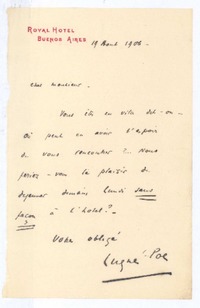 ROYAL HOTEL
BUENOS AIRES
19 Aout 1906 -
Cher monsieur -
Vous êtes en ville dit-on -
Où peut on avoir l'espoir
de vous rencontrer ? Nous
feriez-vous le plaisir de
dejeuner demain lundi sans
façon à l'hotel ? -
Votre obligé
Lugné-Poe